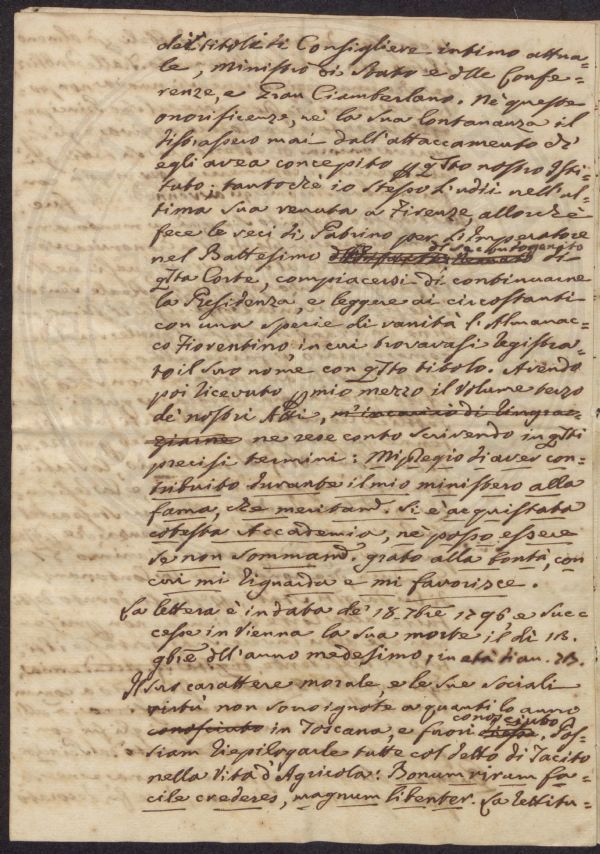 dei titoli di Consigliere intimo attua=
le, Ministro di Stato e dlle Confe=
renze, e Gran Ciamberlano. Nè queste
onorificenze, nè la sua lontananza il
distrassero mai dall'attaccamento ch'
egli avea concepito p qsto nostro Isti=
tuto; tantochè io stesso l'udii nell'ul=
tima sua venuta a Firenze, allorchè
fece le veci di Patrino per l'Imperatore
nel Battesimo di un Primogenito di
qsta Corte, compiacersi di continuarne
la Presidenza, e leggere ai circostanti
con una specie di vanità l'Almanac=
co Fiorentino, in cui trovavasi registra=
to il suo nome con qsto titolo. Avendo
poi ricevuto p mio mezzo il Volume terzo
de' nostri Atti, m'incaricò di ringra=
ziarne ne rese conto scrivendo in qsti
precisi termini: Mi pregio di aver con=
tribuito durante il mio ministero alla
fama, che meritand. si è acquistata
cotesta Accademia, nè posso essere
se non sommamd. grato alla bontà, con
cui mi riguarda e mi favorisce.
La lettera è in data de' 18. 7bre 1796, e suc=
cesse in Vienna la sua morte il dì 18.
9bre dll'anno medesimo, in età di an. 73.
Il suo carattere morale, e le sue sociali
virtù non sono ignote a quanti lo anno
conosciuto
conosciuto in Toscana, e fuori. Pos=
siam riepilogarle tutte col detto di Tacito
nella Vita d'Agricola: Bonum virum fa=
cile crederes, magnum libenter. La rettitu=